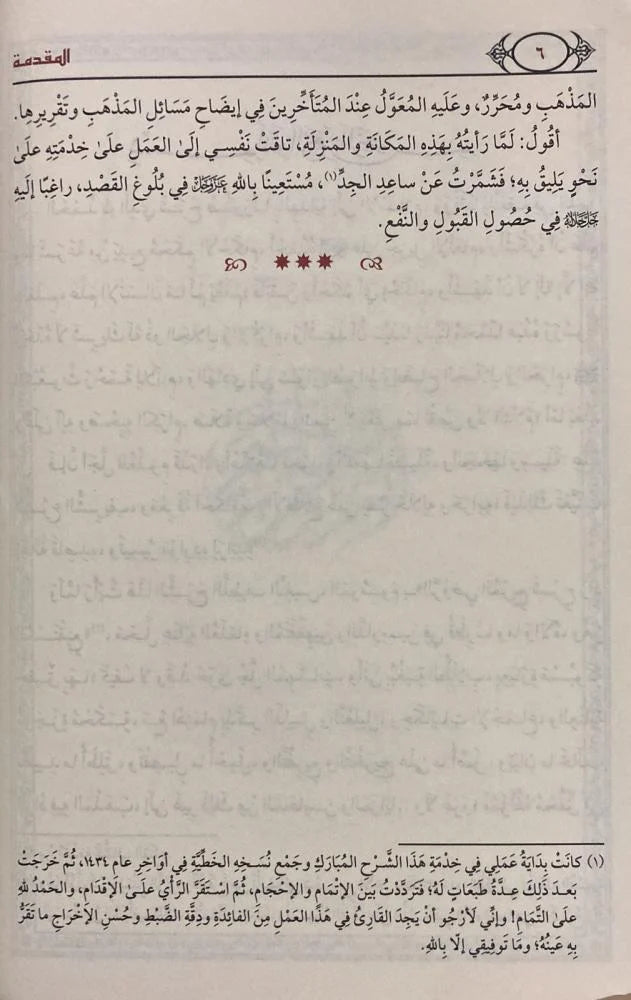 ٦
المقدمة
المَذْهَبِ ومُحَرِّرٌ، وعَلَيهِ المُعَوَّلُ عِنْدَ المُتَأَخِّرِينَ فِي إيضَاحِ مَسَائِلِ المَذْهَبِ وتَقْرِيرِها.
أقُولُ: لَمَّا رَأيتُهُ بِهَذِهِ المَكَانَةِ والمَنْزِلَةِ، تاقَتْ نَفْسِي إلىٰ العَمَلِ علىٰ خِدْمَتِهِ علىٰ
نَحْوٍ يَلِيقُ بِهِ؛ فَشَمَّرْتُ عَنْ ساعِدِ الجِدِّ(١)، مُسْتَعِينًا بِاللهِ عَزَّوَجَلَّ فِي بُلُوغِ القَصْدِ، راغِبًا إلَيهِ
جَلَّجَلَالُهُ فِي حُصُولِ القَبُولِ والنَّفْعِ.
(١) كانَتْ بِدَايَةُ عَمَلِي فِي خِدْمَةِ هَذَا الشَّرْحِ المُبَارَكِ وجَمْعِ نُسَخِهِ الخَطِّيَّةِ فِي أوَاخِرِ عامِ ١٤٣٤، ثُمَّ خَرَجَتْ
بَعدَ ذَلِكَ عِدَّةُ طَبَعَاتٍ لَهُ؛ فَتَرَدَّدْتُ بَينَ الإتْمَامِ والإحْجَامِ، ثُمَّ اسْتَقَرَّ الرَّأيُ علىٰ الإقْدَامِ، والحَمْدُ للهِ
علىٰ التَّمَامِ! وإنِّي لَأرْجُو أنْ يَجِدَ القَارِئُ فِي هَذَا العَمَلِ مِنَ الفَائِدَةِ ودِقَّةِ الضَّبْطِ وحُسْنِ الإخْرَاجِ ما تَقَرُّ
بِهِ عَينُهُ؛ وما تَوفِيقِي إلَّا بِاللهِ.